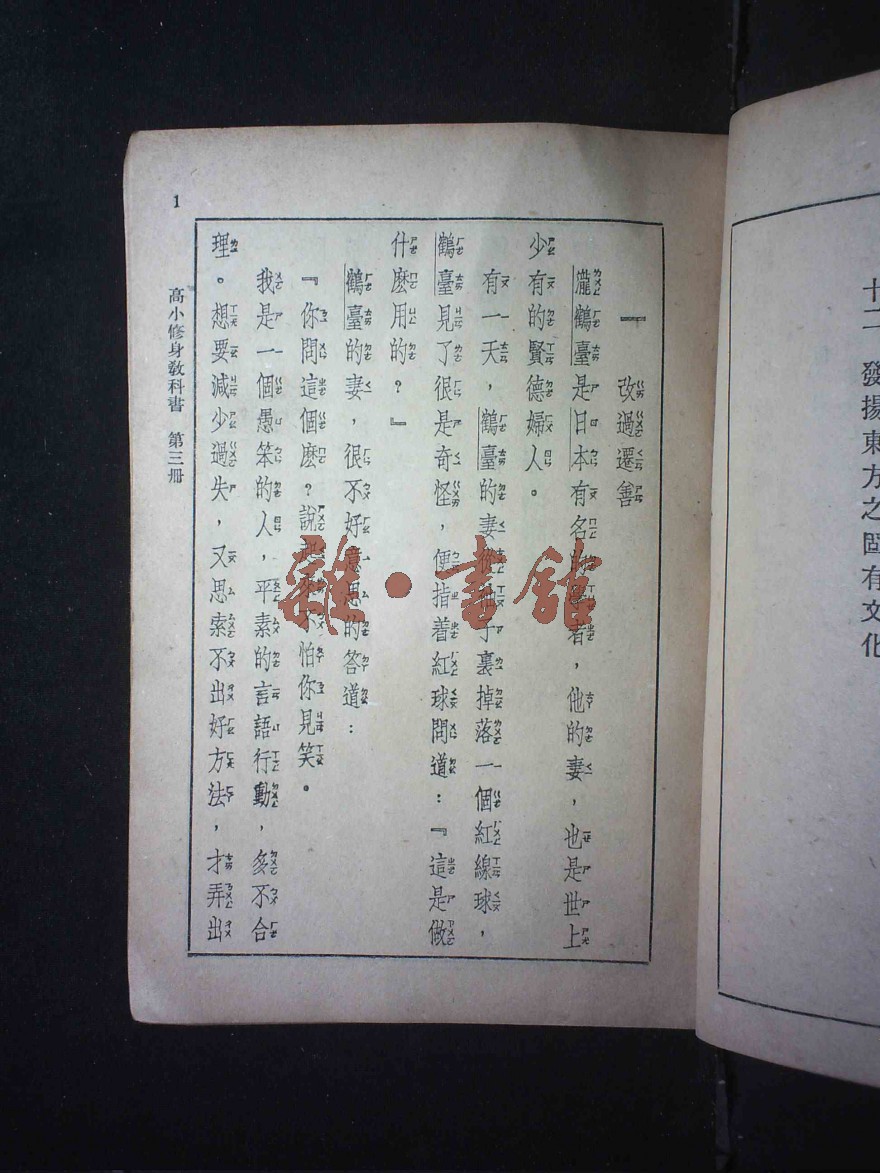 十二 發揚東方之固有文化
一 改過遷善
瀧鶴臺是日本有名的學者，他的妻，也是世上
少有的賢德婦人。
有一天，鶴臺的妻從袖子裏掉落一個紅線球，
鶴臺見了很是奇怪，便指着紅球問道：『這是做
什麽用的？』
鶴臺的妻，很不好意思的答道：
『你問這個麽？說起來不怕你見笑。
我是一個愚笨的人，平素的言語行動，多不合
理。想要減少過失，又思索不出好方法，才弄出
高小修身教科書 第三冊
1
雜·書館